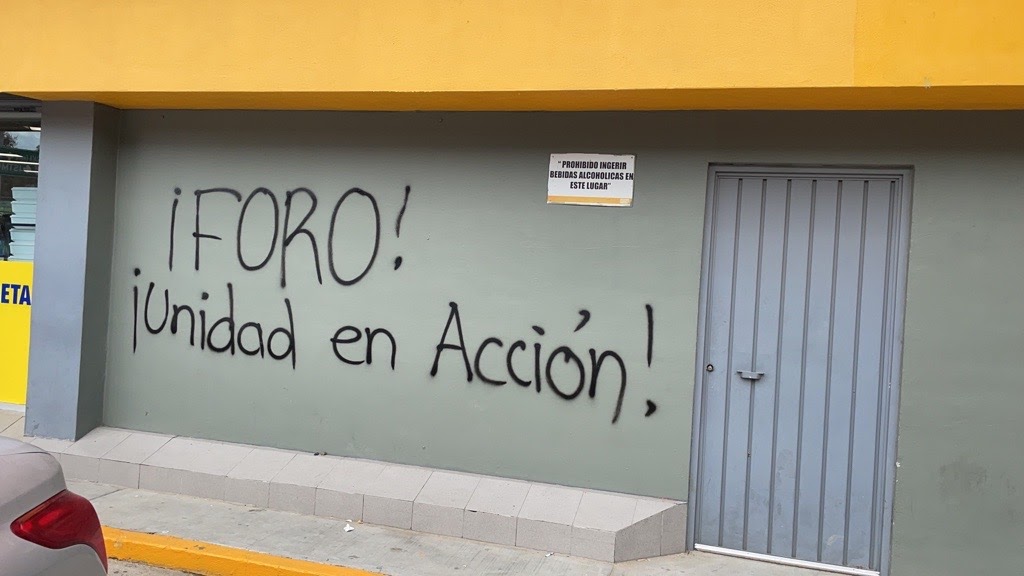 "PROHIBIDO INGERIR
BEBIDAS ALCOHOLICAS EN
ESTE LUGAR"
¡FORO!
¡Unidad en Acción!
ETA